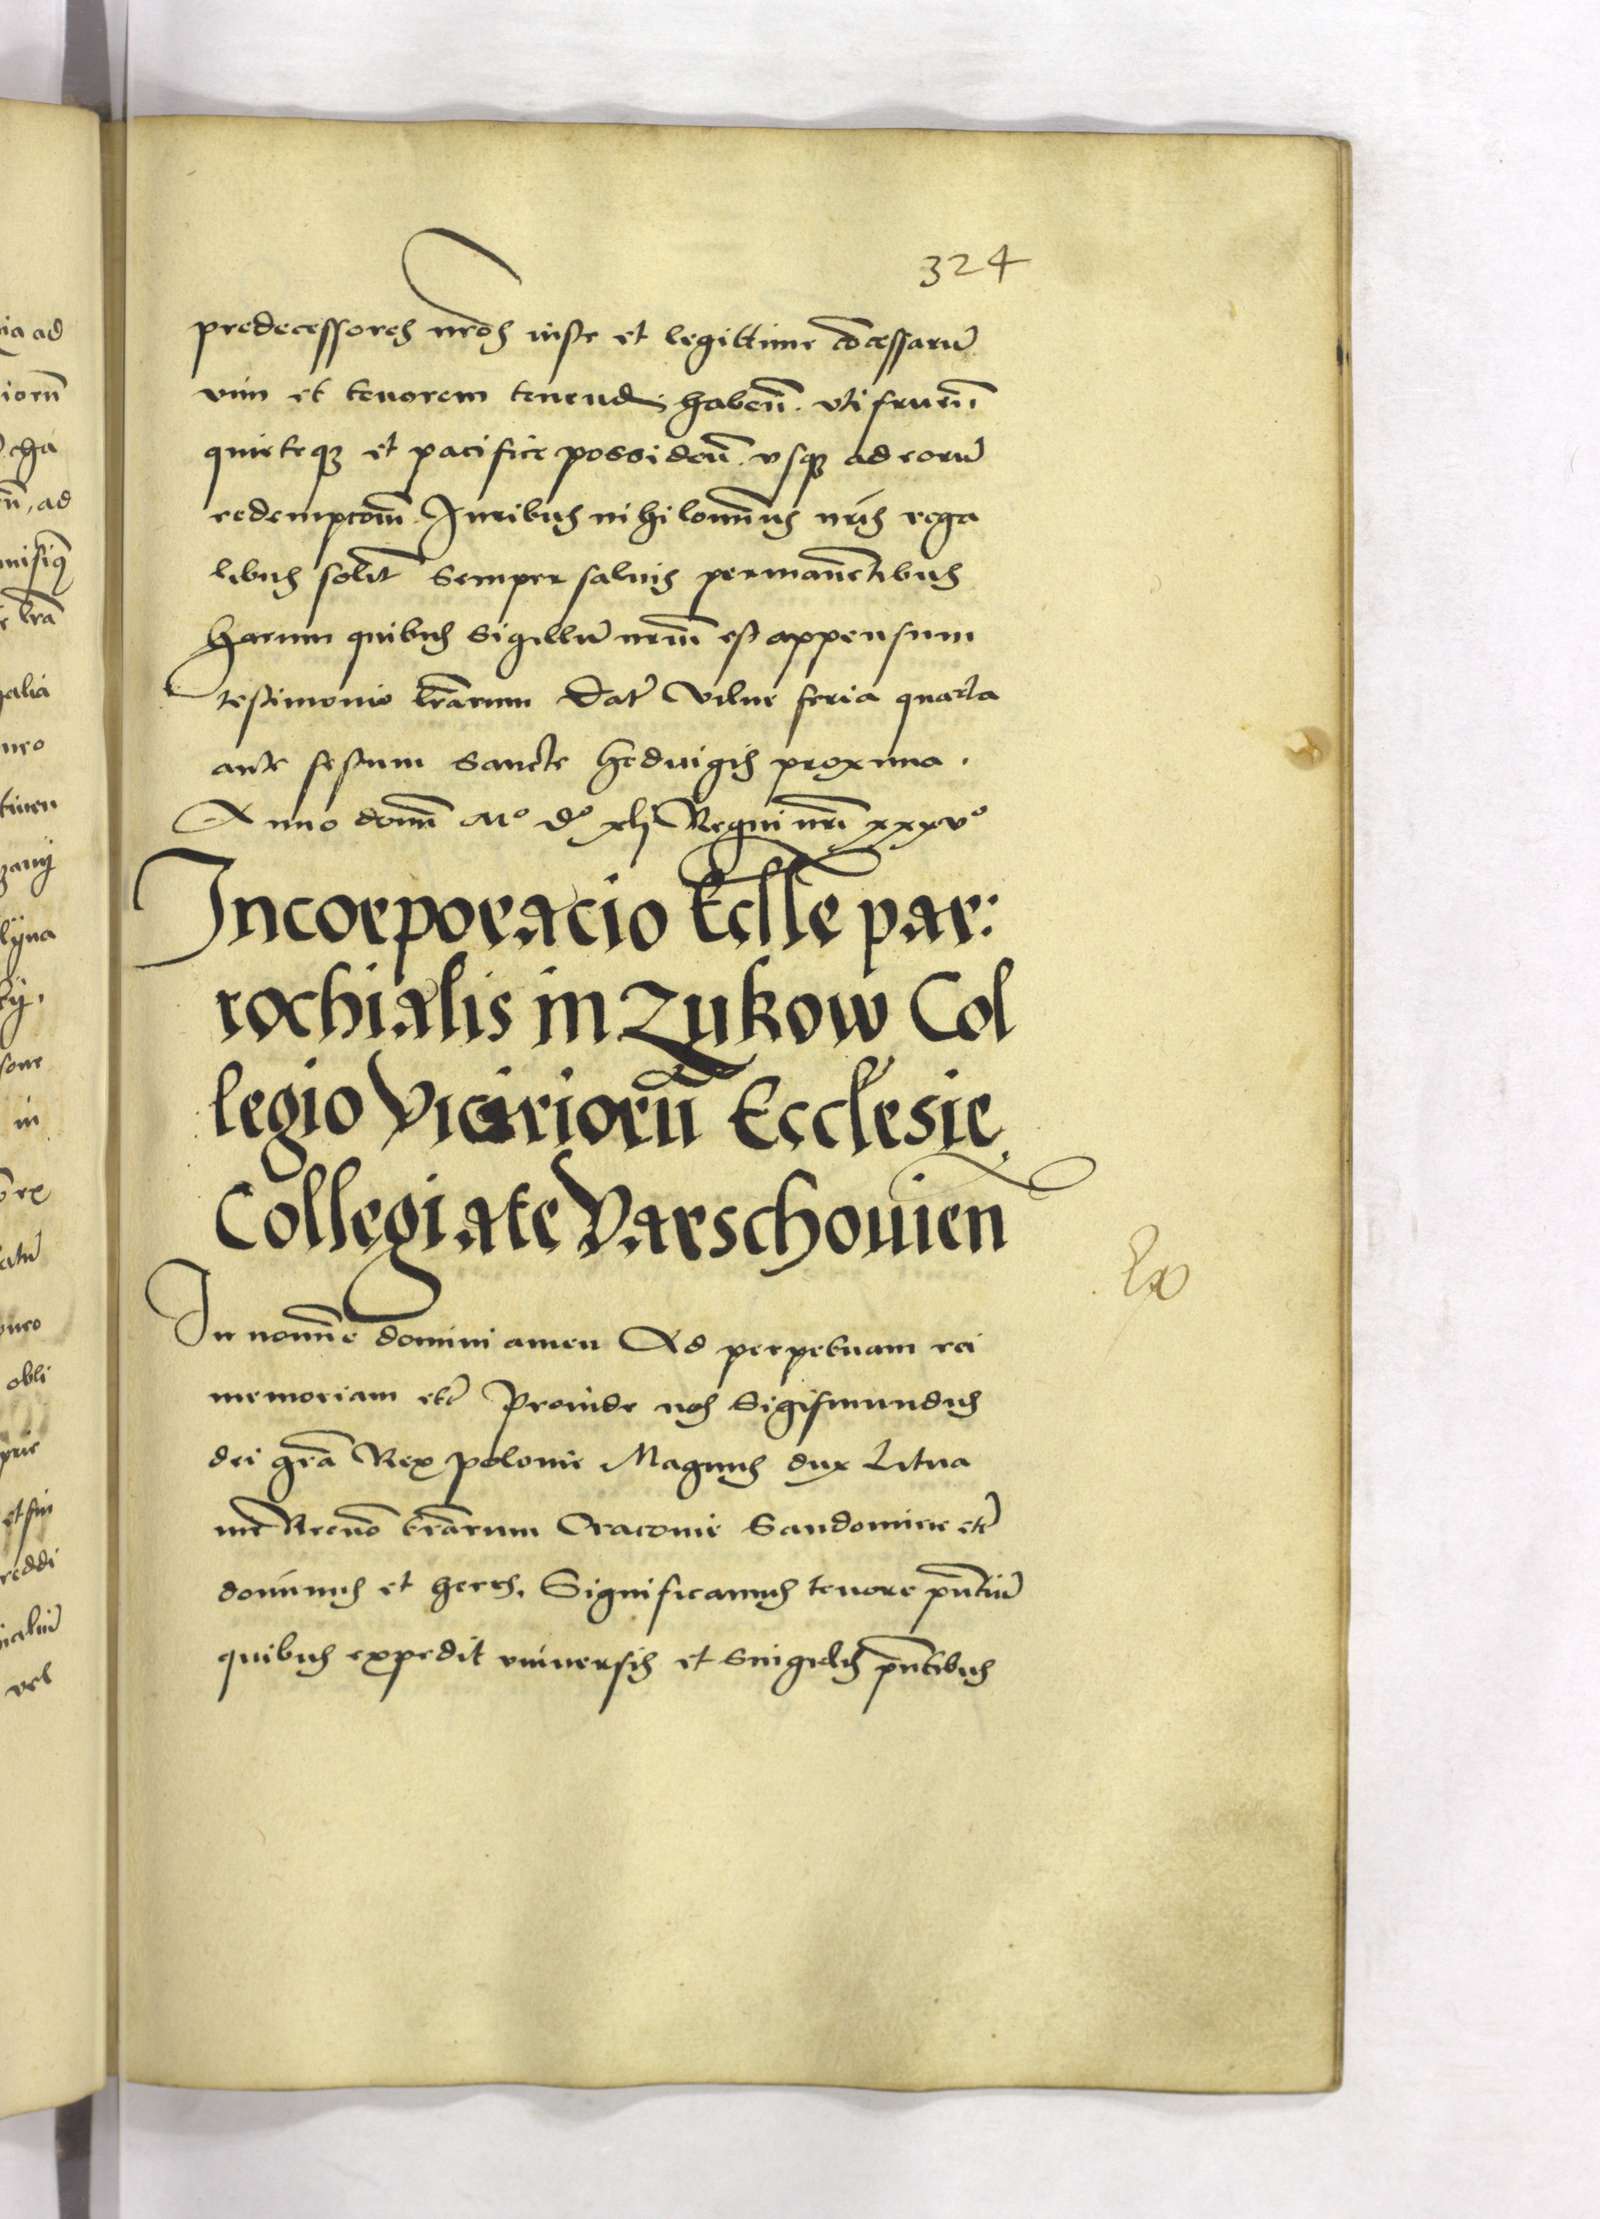 324
predecessores nr̃os iuste et legittime cõcessarũ
vim et tenorem tenend. habeñ. vti frueñ
quieteqȝ et pacifice possideñ. vsqȝ ad eorũ
redempcõm̃. Juribus nihilomin̄us nr̃is rega
libus solit̃ semper saluis permanẽtibus
harum quibus Sigillũ nr̃m̃ est appensum
testimonio l̃rarum Dat̃ Vilne feria quarta
ante festum Sancte Heduigis proxima.
Anno domĩ Mº dº xlj Regni nr̃i xxxvº
Incorporacio Eccl̃ie par:
rochialis in Zukow Col
legio Vicariorũ Ecclesie
Collegiate Varschouien
In nomĩe domini amen Ad perpetuam rei
memoriam etc̃ Proinde nos Sigismundus
dei gr̃a Rex polonie Magnus dux Litua
nie Necnõ t̃rarum Cracouie Sandomirie etc̃
dominus et heres. Significamus tenore pñtiũ
quibus expedit vniuersis et singulis pñtibus